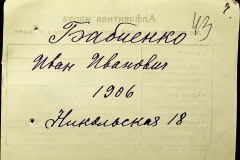 43
Бабиенко
Иван Иванович
1906
Никольская 18